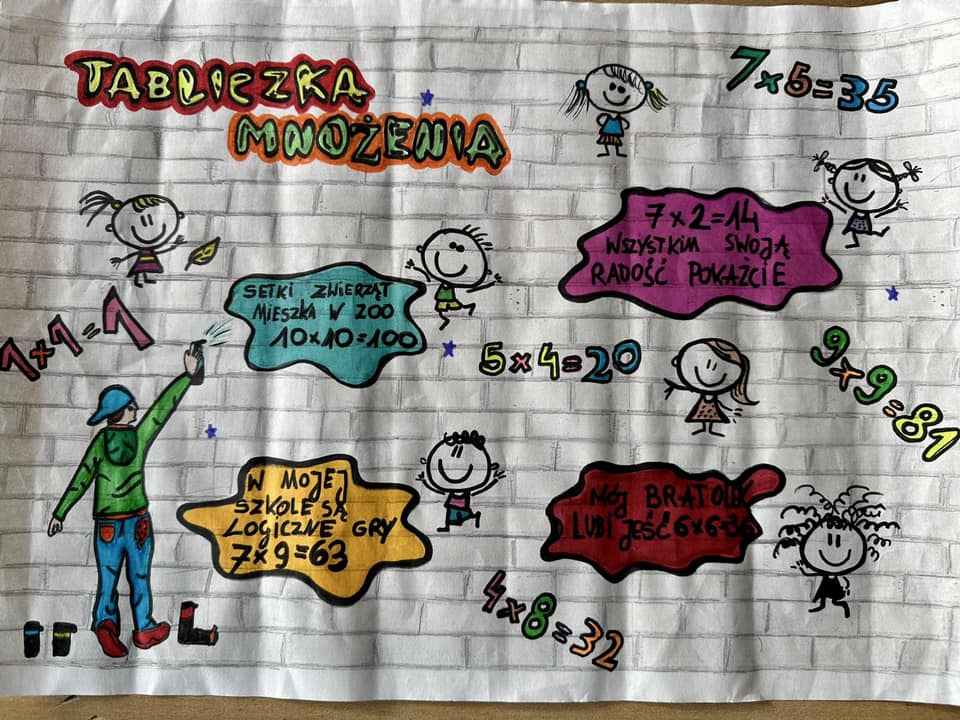 TABLICZKA
MNOŻENIA
7×5=35
7×2=14
WSZYSTKIM SWOJĄ
RADOŚĆ POKAŻCIE
SETKI ZWIERZĄT
MIESZKA W ZOO
10×10=100
1×1=1
5×4=20
9×9=81
W MOJEJ
SZKOLE SĄ
LOGICZNE GRY
7×9=63
MÓJ BRAT
LUBI JEŚĆ 6×6=36
4×8=32